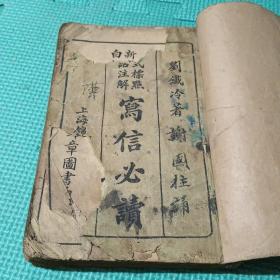 劉鐵冷著
謝国柱誦
新式標點
白話注解
寫信必讀
上海錦章圖書